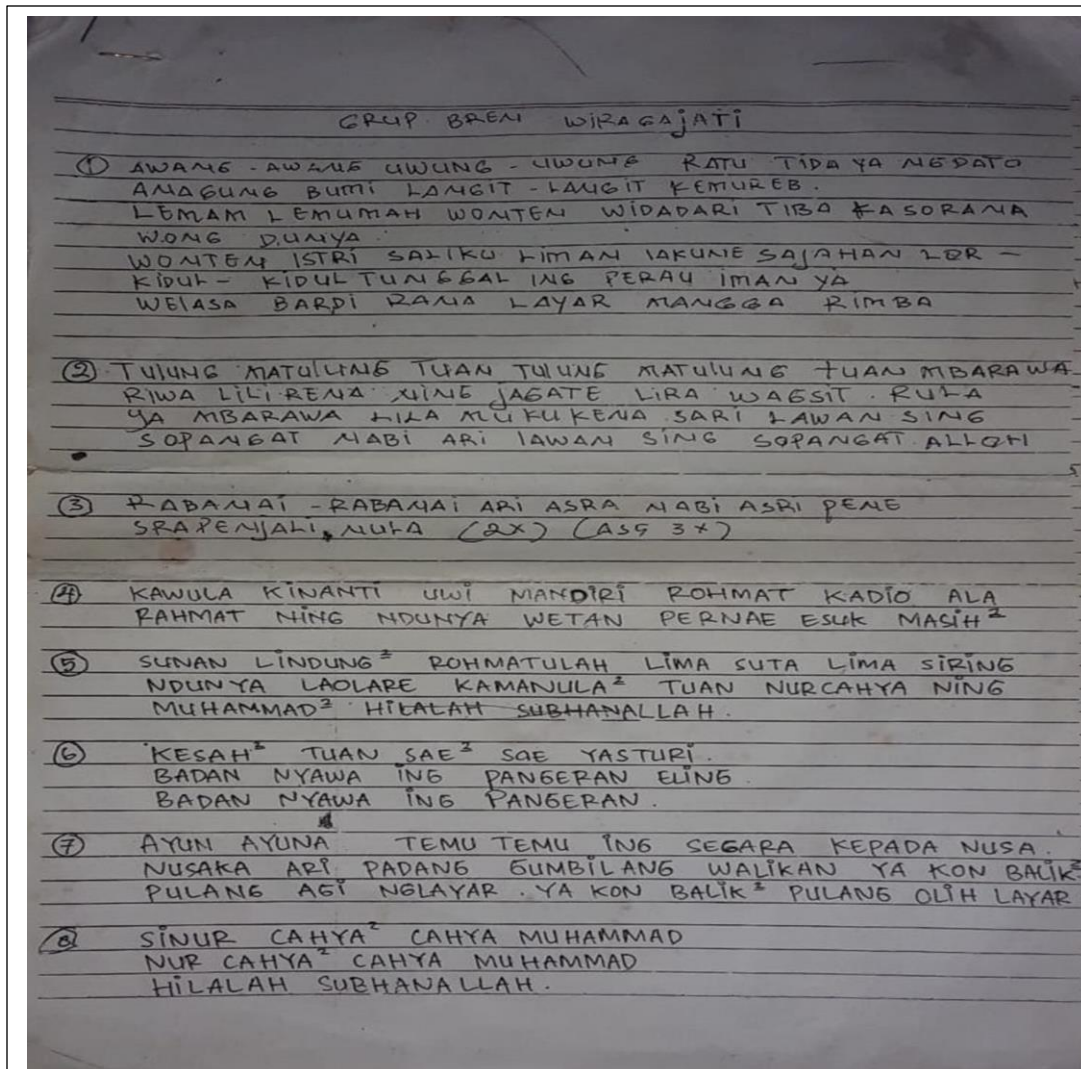 GRUP BREN WIRAGAJATI
① AWANG - AWANG UWUNG - UWUNG RATU TIDA YA NGDATO
ANAGUNG BUMI LANGIT - LANGIT KEMUREB.
LEMAM LEMUMAH WONTEN WIDADARI TIBA KASORANA
WONG DUNYA
WONTEN ISTRI SALIKU LIMAN LAKUNE SAJAHAN LOR -
KIDUL - KIDUL TUNGGAL ING PERAU IMAN YA
WELASA BARDI RANA LAYAR MANGGA RIMBA
② TULUNG MATULUNG TUAN TULUNG MATULUNG TUAN MBARAWA
RIWA LILIRENA NING JAGATE LIRA WAGSIT. RULA
YA MBARAWA LILA MUKUKENA SARI LAWAN SING
SOPANGAT NABI ARI LAWAN SING SOPANGAT ALLOH
③ RABANAI - RABANAI ARI ASRA NABI ASRI PENG
SRAPENJALI, NULA (2X)
④ KAWULA KINANTI UWI MANDIRI ROHMAT KADIO ALA
RAHMAT NING NDUNYA WETAN PERNAE ESUK MASIH²
⑤ SUNAN LINDUNG² ROHMATULAH LIMA SUTA LIMA SIRING
NDUNYA LAOLARE KAMANULA² TUAN NURCAHYA NING
MUHAMMAD² HILALAH SUBHANALLAH.
⑥ KESAH² TUAN SAE² SAE YASTURI.
BADAN NYAWA ING PANGERAN ELING.
BADAN NYAWA ING PANGERAN.
⑦ AYUN AYUNA TEMU TEMU ING SEGARA KEPADA NUSA.
NUSAKA ARI PADANG GUMBILANG WALIKAN YA KON BALIK²
PULANG AGI NGLAYAR. YA KON BALIK² PULANG OLIH LAYAR
⑧ SINUR CAHYA² CAHYA MUHAMMAD
NUR CAHYA² CAHYA MUHAMMAD
HILALAH SUBHANALLAH.